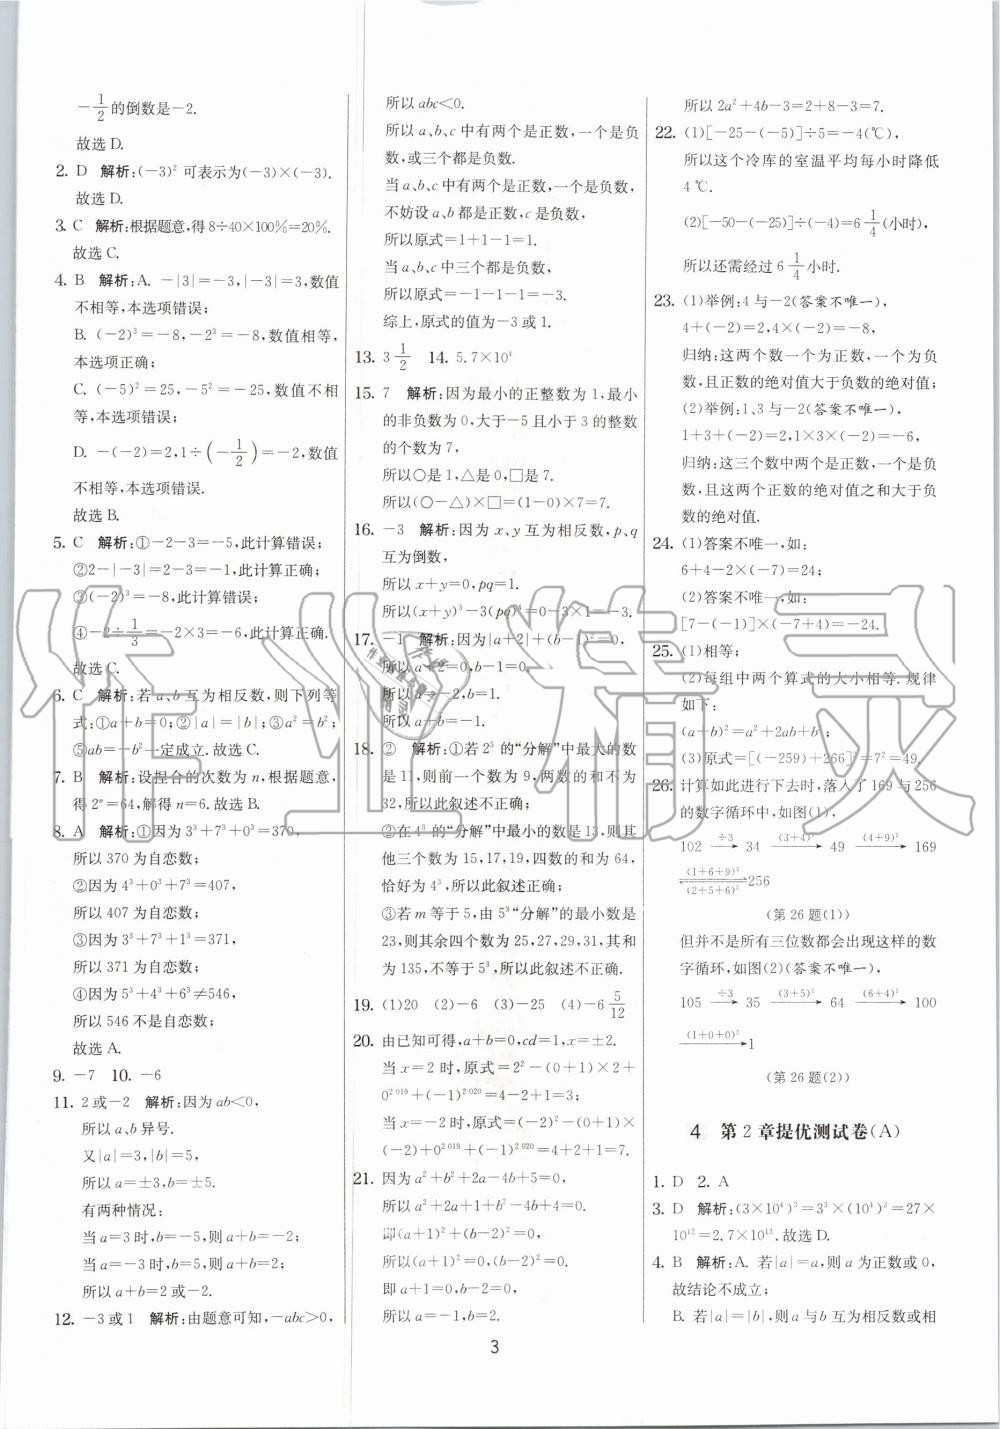 -1/2的倒数是-2.
故选D.
2. D 解析:(-3)²可表示为(-3)×(-3).
故选D.
3. C 解析:根据题意,得8÷40×100%=20%.
故选C.
4. B 解析:A. -|3|=-3,|-3|=3,数值
不相等,本选项错误;
B. (-2)³=-8,-2³=-8,数值相等,
本选项正确;
C. (-5)²=25,-5²=-25,数值不相
等,本选项错误;
D. -(-2)=2,1÷(-1/2)=-2,数值
不相等,本选项错误.
故选B.
5. C 解析:①-2-3=-5,此计算错误;
②2-|-3|=2-3=-1,此计算正确;
③(-2)³=-8,此计算错误;
④-2÷1/3=-2×3=-6,此计算正确.
故选C.
6. C 解析:若a、b互为相反数,则下列等
式:①a+b=0;②|a|=|b|;③a²=b²;
⑤ab=-b²一定成立.故选C.
7. B 解析:设捏合的次数为n,根据题意,
得2ⁿ=64,解得n=6.故选B.
8. A 解析:①因为3³+7³+0³=370,
所以370为自恋数;
②因为4³+0³+7³=407,
所以407为自恋数;
③因为3³+7³+1³=371,
所以371为自恋数;
④因为5³+4³+6³≠546,
所以546不是自恋数;
故选A.
9. -7 10. -6
11. 2或-2 解析:因为ab<0,
所以a、b异号.
又|a|=3,|b|=5,
所以a=±3,b=±5.
有两种情况:
当a=3时,b=-5,则a+b=-2;
当a=-3时,b=5,则a+b=2;
所以a+b=2或-2.
12. -3或1 解析:由题意可知,-abc>0,
所以abc<0.
所以a、b、c中有两个是正数,一个是负
数,或三个都是负数.
当a、b、c中有两个是正数,一个是负数,
不妨设a、b都是正数,c是负数,
所以原式=1+1-1=1.
当a、b、c中三个都是负数,
所以原式=-1-1-1=-3.
综上,原式的值为-3或1.
13. 3 1/2 14. 5.7×10⁴
15. 7 解析:因为最小的正整数为1,最小
的非负数为0,大于-5且小于3的整数
的个数为7,
所以○是1,△是0,□是7.
所以(○-△)×□=(1-0)×7=7.
16. -3 解析:因为x、y互为相反数,p、q
互为倒数,
所以x+y=0,pq=1.
所以(x+y)³-3(pq)⁴=0-3×1=-3.
17. -1 解析:因为|a+2|+(b-1)²=0,
所以a+2=0,b-1=0.
所以a=-2,b=1.
所以a+b=-1.
18. ② 解析:①若2⁵的“分解”中最大的数
是11,则前一个数为9,两数的和不为
32,所以此叙述不正确;
②在4³的“分解”中最小的数是13,则其
他三个数为15,17,19,四数的和为64,
恰好为4³,所以此叙述正确;
③若m等于5,由5³“分解”的最小数是
23,则其余四个数为25,27,29,31,其和
为135,不等于5³,所以此叙述不正确.
19. (1)20 (2)-6 (3)-25 (4)-6 5/12
20. 由已知可得,a+b=0,cd=1,x=±2.
当x=2时,原式=2²-(0+1)×2+
0²⁰¹⁹+(-1)²⁰²⁰=4-2+1=3;
当x=-2时,原式=(-2)²-(0+1)×
(-2)+0²⁰¹⁹+(-1)²⁰²⁰=4+2+1=7.
21. 因为a²+b²+2a-4b+5=0,
所以a²+2a+1+b²-4b+4=0,
即(a+1)²+(b-2)²=0,
所以(a+1)²=0,(b-2)²=0.
即a+1=0,b-2=0,
所以a=-1,b=2.
所以2a²+4b-3=2+8-3=7.
22. (1)[-25-(-5)]÷5=-4(℃),
所以这个冷库的室温平均每小时降低
4℃.
(2)[-50-(-25)]÷(-4)=6 1/4(小时).
所以还需经过6 1/4小时.
23. (1)举例:4与-2(答案不唯一),
4+(-2)=2,4×(-2)=-8,
归纳:这两个数一个为正数,一个为负
数,且正数的绝对值大于负数的绝对值;
(2)举例:1、3与-2(答案不唯一),
1+3+(-2)=2,1×3×(-2)=-6,
归纳:这三个数中两个是正数,一个是负
数,且这两个正数的绝对值之和大于负数
的绝对值.
24. (1)答案不唯一,如:
6+4-2×(-7)=24;
(2)答案不唯一,如:
[7-(-1)×(-4)
]×(-8)=-24.
25. (1)相等;
(2)每组中两个算式的大小相等.规律
如下:
(a+b)²=a²+2ab+b²;
(3)原式=[(-259)+266]²=7²=49.
26. 计算如此进行下去时,落入了169与256
的数字循环中,如图(1),
102 ÷3→ 34 (3+4)²→ 49 (4+9)²→ 169
(1+6+9)²⇌(2+5+6)² 256
(第26题(1))
但并不是所有三位数都会出现这样的数
字循环,如图(2)(答案不唯一),
105 ÷3→ 35 (3+5)²→ 64 (6+4)²→ 100
(1+0+0)²→1
(第26题(2))
4 第2章提优测试卷(A)
1. D 2. A
3. D 解析:(3×10⁴)³=3³×(10⁴)³=27×
10¹²=2.7×10¹³.故选D.
4. B 解析:A. 若|a|=a,则a为正数或0,
故结论不成立;
B. 若|a|=|b|,则a与b互为相反数或相
3
作业精灵